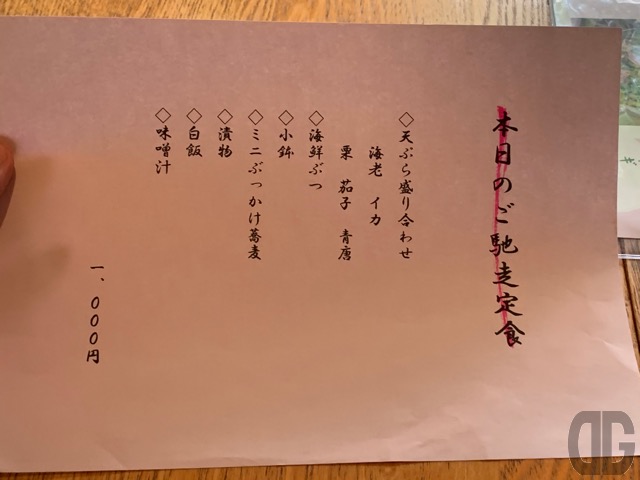 本日のご馳走定食
◇天ぷら盛り合わせ
海老 イカ
栗 茄子 青唐
◇海鮮ぶつ
◇小鉢
◇ミニぶっかけ蕎麦
◇漬物
◇白飯
◇味噌汁
一、〇〇〇円
DG